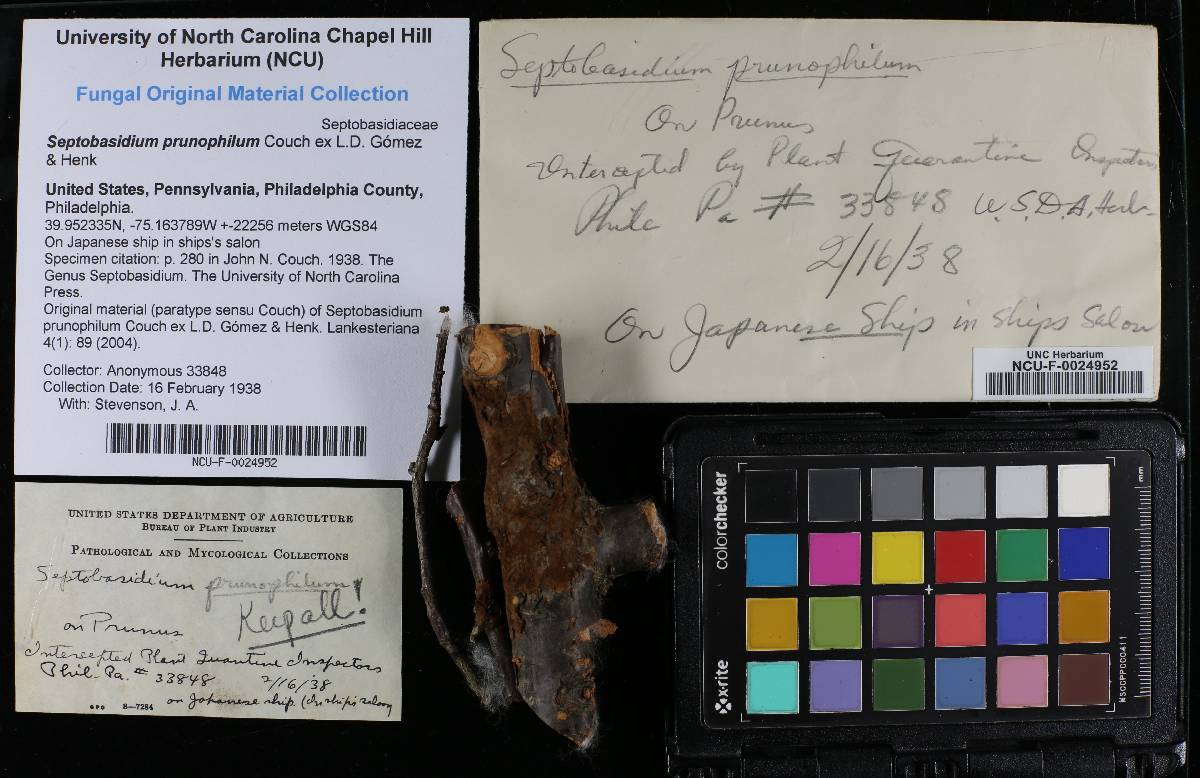 University of North Carolina Chapel Hill
Herbarium (NCU)
Fungal Original Material Collection
Septobasidiaceae
Septobasidium prunophilum Couch ex L.D. Gómez
& Henk
United States, Pennsylvania, Philadelphia County,
Philadelphia.
39.952335N, -75.163789W +-22256 meters WGS84
On Japanese ship in ships's salon
Specimen citation: p. 280 in John N. Couch. 1938. The
Genus Septobasidium. The University of North Carolina
Press.
Original material (paratype sensu Couch) of Septobasidium
prunophilum Couch ex L.D. Gómez & Henk. Lankesteriana
4(1): 89 (2004).
Collector: Anonymous 33848
Collection Date: 16 February 1938
With: Stevenson, J. A.
NCU-F-0024952
Septobasidium prunophilum
On Prunus
Intercepted by Plant Quarantine Inspectors
Phila Pa # 33848 U.S.D.A. Herb.
2/16/38
On Japanese Ship in Ships Salon
UNC Herbarium
NCU-F-0024952
UNITED STATES DEPARTMENT OF AGRICULTURE
BUREAU OF PLANT INDUSTRY
PATHOLOGICAL AND MYCOLOGICAL COLLECTIONS
Septobasidium prunophilum!
Keep all!
on Prunus
Intercepted Plant Quantine Inspectors
Phil. Pa. # 33848 2/16/38
on Japanese ship. (In ship's saloon)
GPO 8—7284
colorchecker
x-rite
mm
MSCCPPCC0411